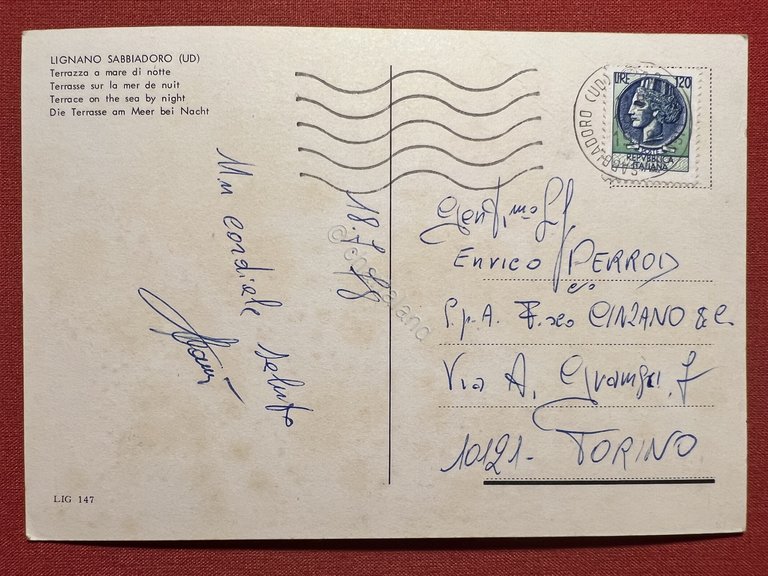 LIGNANO SABBIADORO (UD)
Terrazza a mare di notte
Terrasse sur la mer de nuit
Terrace on the sea by night
Die Terrasse am Meer bei Nacht
LIRE 120
POSTE
REPVBBLICA
ITALIANA
SABBIADORO (UD)
18.7.78
Un cordiale saluto
Gent.mo
Enrico PERROD
c/o
S.p.A. F.sco CINZANO & C.
Via A. Gramsci, 7
10121 - TORINO
LIG 147